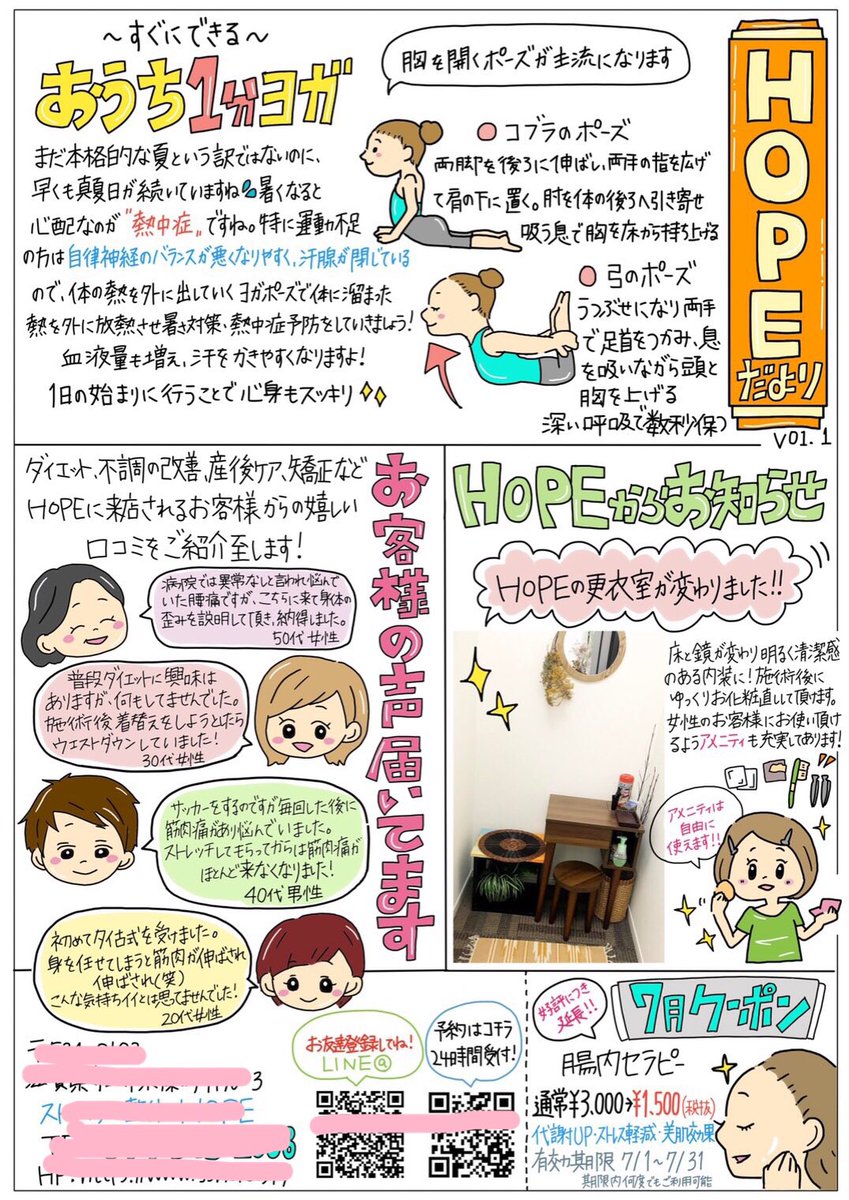 HOPE
だより
VOl.1
〜すぐにできる〜
おうち1分ヨガ
まだ本格的な夏という訳ではないのに、
早くも真夏日が続いていますね 暑くなると
心配なのが"熱中症"ですね。特に運動不足
の方は自律神経のバランスが悪くなりやすく、汗腺が閉じている
ので、体の熱を外に出していくヨガポーズで体に溜まった
熱を外に放熱させ暑さ対策・熱中症予防をしていきましょう!
血液量も増え、汗をかきやすくなりますよ!
1日の始まりに行うことで心身もスッキリ
胸を開くポーズが主流になります
コブラのポーズ
両脚を後ろに伸ばし、両手の指を広げ
て肩の下に置く。肘を体の後ろへ引き寄せ
吸う息で胸を床から持ち上げる
弓のポーズ
うつぶせになり両手
で足首をつかみ、息
を吸いながら頭と
胸を上げる
深い呼吸で数秒保つ
お客様の声届いてます
ダイエット、不調の改善、産後ケア、矯正など
HOPEに来店されるお客様からの嬉しい
口コミをご紹介至します!
病院では異常なしと言われ悩んで
いた腰痛ですが、こちらに来て身体の
歪みを説明して頂き、納得しました。
50代女性
普段ダイエットに興味は
ありますが、何もしてませんでした。
施術後着替えをしようとしたら
ウエストダウンしていました!
30代女性
サッカーをするのですが毎回した後に
筋肉痛があり悩んでいました。
ストレッチしてもらってからは筋肉痛が
ほとんど来なくなりました!
40代男性
初めてタイ古式を受けました。
身を任せてしまうと筋肉が伸ばされ
伸ばされ(笑)
こんな気持ちイイとは思ってませんでした!
20代女性
HOPEからお知らせ
HOPEの更衣室が変わりました!!
床と鏡が変わり明るく清潔感
のある内装に!施術後に
ゆっくりお化粧直しして頂けます。
女性のお客様にお使い頂け
るようアメニティも充実してあります!
アメニティは
自由に
使えます!!
お友達登録してね!
LINE@
予約はコチラ
24時間受付!
好評につき
延長!!
7月クーポン
腸内セラピー
通常¥3.000→¥1.500(税抜)
代謝UP・ストレス軽減・美肌効果
有効期限 7/1〜7/31
期限内何度でもご利用可能